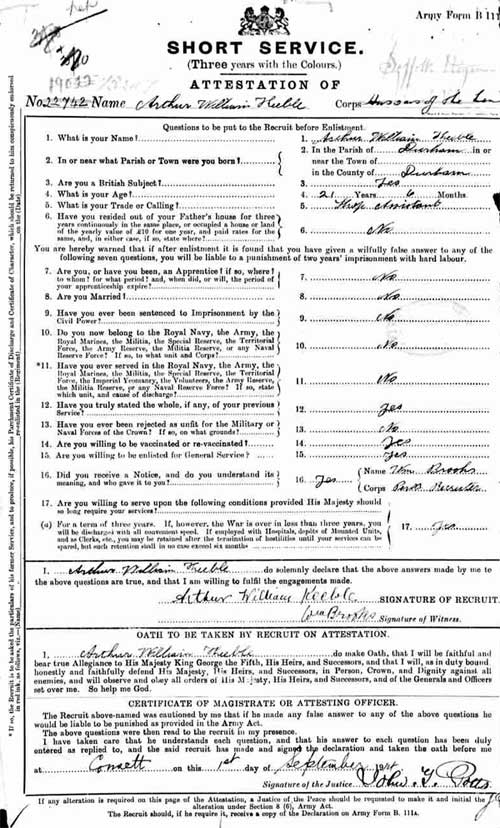 Army Form B 111
SHORT SERVICE.
(Three years with the Colours.)
ATTESTATION OF
No. 22742 Name Arthur William Keeble Corps Hussars of the Line
Questions to be put to the Recruit before Enlistment.
1. What is your Name? 1. Arthur William Keeble
2. In or near what Parish or Town were you born? 2. In the Parish of Durham in or
near the Town of
in the County of Durham
3. Are you a British Subject? 3. Yes
4. What is your Age? 4. 21 Years 6 Months
5. What is your Trade or Calling? 5. Shop Assistant
6. Have you resided out of your Father's house for three
years continuously in the same place, or occupied a house or land
of the yearly value of £10 for one year, and paid rates for the
same, and, in either case, if so, state where? 6. No
You are hereby warned that if after enlistment it is found that you have given a wilfully false answer to any of the
following seven questions, you will be liable to a punishment of two years' imprisonment with hard labour.
7. Are you, or have you been, an Apprentice? if so, where?
to whom? for what period? and, when did, or will, the period of
your apprenticeship expire? 7. No
8. Are you Married? 8. No
9. Have you ever been sentenced to Imprisonment by the
Civil Power? 9. No
10. Do you now belong to the Royal Navy, the Army, the
Royal Marines, the Militia, the Special Reserve, the Territorial
Force, the Army Reserve, the Militia Reserve, or any Naval
Reserve Force? If so, to what unit and Corps? 10. No
*11. Have you ever served in the Royal Navy, the Army, the
Royal Marines, the Militia, the Special Reserve, the Territorial
Force, the Imperial Yeomanry, the Volunteers, the Army Reserve,
the Militia Reserve, or any Naval Reserve Force? If so, state
which unit, and cause of discharge? 11. No
12. Have you truly stated the whole, if any, of your previous
Service? 12. Yes
13. Have you ever been rejected as unfit for the Military or
Naval Forces of the Crown? If so, on what grounds? 13. No
14. Are you willing to be vaccinated or re-vaccinated? 14. Yes
15. Are you willing to be enlisted for General Service? 15. Yes
16. Did you receive a Notice, and do you understand its
meaning, and who gave it to you? 16. Yes Name Wm Brooks
Corps Recruiter
17. Are you willing to serve upon the following conditions provided His Majesty should
so long require your services?
(a) For a term of three years. If, however, the War is over in less than three years, you
will be discharged with all convenient speed. If employed with Hospitals, depôts of Mounted Units,
and as Clerks, etc., you may be retained after the termination of hostilities until your services can be
spared, but such retention shall in no case exceed six months 17. Yes
I, Arthur William Keeble do solemnly declare that the above answers made by me to
the above questions are true, and that I am willing to fulfil the engagements made.
Arthur William Keeble SIGNATURE OF RECRUIT.
Wm Brooks Signature of Witness.
OATH TO BE TAKEN BY RECRUIT ON ATTESTATION.
I, Arthur William Keeble do make Oath, that I will be faithful and
bear true Allegiance to His Majesty King George the Fifth, His Heirs, and Successors, and that I will, as in duty bound,
honestly and faithfully defend His Majesty, His Heirs, and Successors, in Person, Crown, and Dignity against all
enemies, and will observe and obey all orders of His Majesty, His Heirs, and Successors, and of the Generals and Officers
set over me. So help me God.
CERTIFICATE OF MAGISTRATE OR ATTESTING OFFICER.
The Recruit above-named was cautioned by me that if he made any false answer to any of the above questions he
would be liable to be punished as provided in the Army Act.
The above questions were then read to the recruit in my presence.
I have taken care that he understands each question, and that his answer to each question has been duly
entered as replied to, and the said recruit has made and signed the declaration and taken the oath before me
at Consett on this 1st day of September 1914
Signature of the Justice John G. Potts
If any alteration is required on this page of the Attestation, a Justice of the Peace should be requested to make it and initial the
alteration under Section 8 (6), Army Act.
The Recruit should, if he require it, receive a copy of the Declaration on Army Form B. 111A.